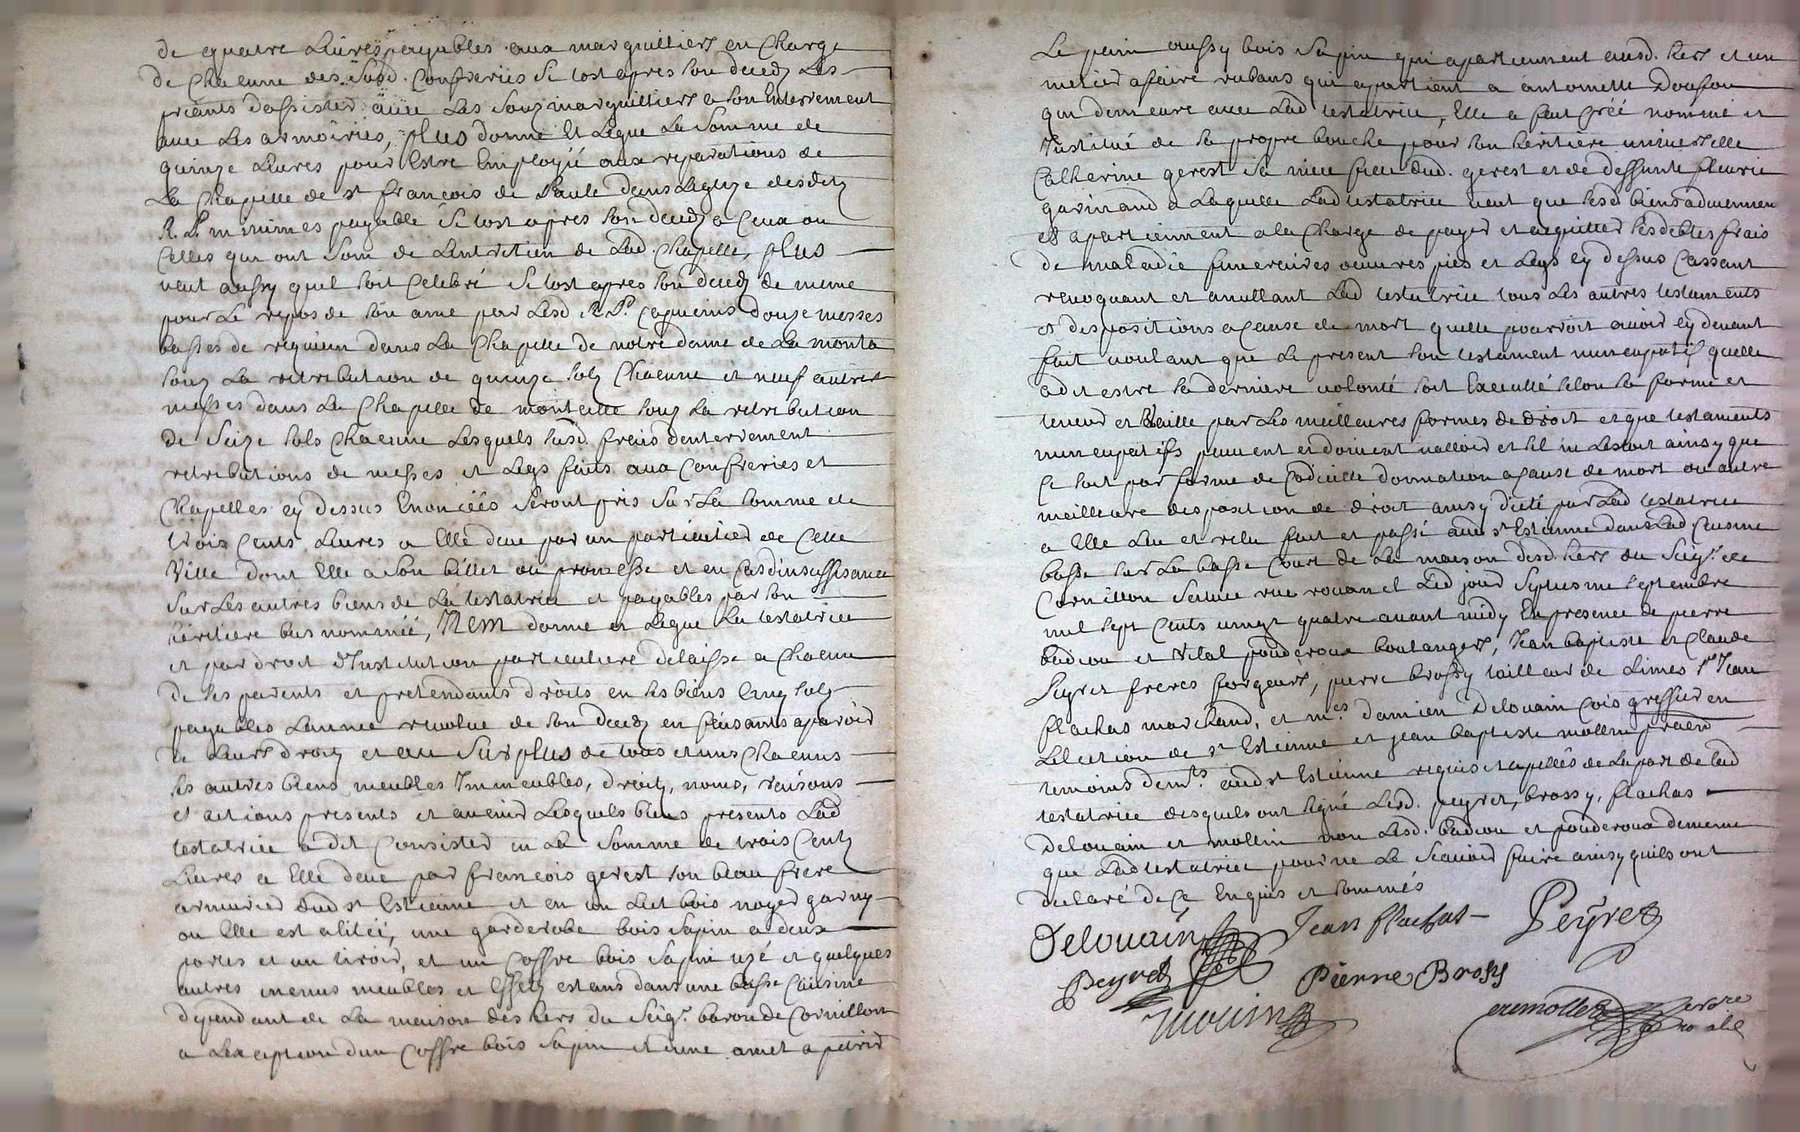 de quatre Livres payables aux marguilliers en Charge
de Chacune des Susd. Confreries Si tost apres son deceds Les
priants d'assister avec Les Sousmarguilliers a son Enterrement
avec Les armoiries, plus donne Et Legue La Somme de
quinze Livres pour Estre Employé aux reparations de
La Chapelle de st françois de Paule dans Leglize desdits
R. P. minimes payable Si tost apres son deceds a Ceux ou
Celles qui ont Soin de Lentretien de Lad Chapelle, plus
veut aussy quil soit Celebré Si tost apres son deceds de meme
pour Le repos de son ame par Lesd. R. P. Capucins douze messes
basses de requiem dans La Chapelle de notre dame de La monta
sous La retribution de quinze sols Chacune et neuf autres
messes dans La Chapelle de sous La retribution
de Seize sols Chacune Lesquels susd. frais denterrement
retributions de messes et Legs faits aux Confreries et
Chapelles cy dessus Enoncéés Seront pris Sur La somme de
trois Cents Livres a Elle deue par un particulier de Cette
Ville dont Elle a Son billet ou promesse et en Cas dinsuffisance
Sur Les autres biens de La testatrice et payables par son
héritiere bas nommée, Item donne et Legue La testatrice
et par droit d'Institution particuliere delaisse a Chacun
de ses parents et pretendants droits en ses biens Cinq sols
payables Lannée revolue de son deceds en faisants aparoir
de Leurs droits et au Surplus de tous et uns Chacuns
ses autres biens meubles Immeubles, droits, noms, raisons
et actions presents et avenir Lesquels biens presents Lad
testatrice a dit Consister en La Somme de trois Cents
Livres a Elle deue par françois gerest son beau frere
armurier aud st Estienne et en un Lict bois noyer garny
ou Elle est alitéé, une garderobe bois Sapin a deux
portes et un tiroir, et un Coffre bois Sapin uzé et quelques
autres menus meubles et Effets estans dans une basse Cuisine
dependant de La maison des hers du Seigr. baron de Cornillon
a Lexception d'un Coffre bois Sapin et une a petrir
Le pain aussy bois Sapin qui apartiennent ausd. hers et un
metier a faire rubans qui apartient a antoinette
qui demeure avec Lad testatrice, Elle a fait créé nommé et
Institué de sa propre bouche pour son héritiere universelle
Catherine gerest sa niece fille dud. gerest et de deffunte fleurie
a Laquelle Lad testatrice veut que sesd biens adviennent
et apartiennent a la Charge de payer et acquitter ses debtes frais
de maladie funeraires oeuvres pies et Legs cy dessus Cassant
revoquant et anullant Lad testatrice tous Les autres testaments
et dispositions a Cause de mort quelle pourroit avoir cy devant
fait voulant que Le present son testament nuncupatif quelle
a dit estre sa derniere volonté soit Executté selon sa forme et
teneur et Vaille par Les meilleures formes de droit et que testaments
nuncupatifs peuvent et doivent valloir et sil ne Lestoit ainsy que
Ce soit par forme de Codicille donnation a Cause de mort ou autre
meilleure disposition de droit ainsy dicté par Lad testatrice
a Elle Lu et relu fait et passé aud st Estienne dans Lad Cuisine
basse sur La basse Court de La maison desd. hers du Seigr. de
Cornillon Scituée rue rouanel Led jour Septiesme Septembre
mil Sept Cents vingt quatre avant midy En presence de pierre
badiou et Vital pouderoux boulangers, Jean baptiste et Claude
Peyret freres forgeurs, pierre brossy tailleur de Limes sr Jean
flachas marchand, et mes. damien Delouain greffier en
Lelection de st Estienne et jean baptiste mollin praen
temoins demts. aud st Estienne requis et apellés de La part de Lad
testatrice desquels ont signé Lesd. peyret, brossy, flachas
Delouain et mollin non Lesd. badiou et pouderoux de meme
que Lad testatrice pour ne Le Scavoir faire ainsy quils ont
declaré de Ce Enquis et sommés
Delouain Jean flachas Peyret
Peyret Pierre Brossy
mollin